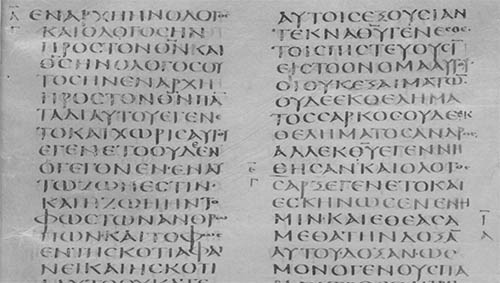 ΕΝΑΡΧΗΗΝΟΛΟΓΟϹ
ΚΑΙΟΛΟΓΟϹΗΝ
ΠΡΟϹΤΟΝΘΝΚΑΙ
ΘϹΗΝΟΛΟΓΟϹΟΥ
ΤΟϹΗΝΕΝΑΡΧΗ
ΠΡΟϹΤΟΝΘΝΠΑ
ΤΑΔΙΑΥΤΟΥΕΓΕΝΕ
ΤΟΚΑΙΧΩΡΙϹΑΥΤΟΥ
ΕΓΕΝΕΤΟΟΥΔΕΝ
ΟΓΕΓΟΝΕΝΕΝΑΥ
ΤΩΖΩΗΕϹΤΙΝ
ΚΑΙΗΖΩΗΗΝΤΟ
ΦΩϹΤΩΝΑΝΘΡΩ
ΠΩΝΚΑΙΤΟΦΩϹ
ΕΝΤΗϹΚΟΤΙΑΦΑΙ
ΝΕΙΚΑΙΗϹΚΟΤΙ
ΑΥΤΟΙϹΕΞΟΥϹΙΑΝ
ΤΕΚΝΑΘΥΓΕΝΕϹΘΕ
ΤΟΙϹΠΙϹΤΕΥΟΥϹΙ
ΕΙϹΤΟΟΝΟΜΑΑΥΤΟΥ
ΟΙΟΥΚΕΞΑΙΜΑΤΩ
ΟΥΔΕΕΚΘΕΛΗΜΑ
ΤΟϹϹΑΡΚΟϹΟΥΔΕΕΚ
ΘΕΛΗΜΑΤΟϹΑΝΔΡΟϹ
ΑΛΛΕΚΘΥΕΓΕΝΝΗ
ΘΗϹΑΝΚΑΙΟΛΟΓΟϹ
ϹΑΡΞΕΓΕΝΕΤΟΚΑΙ
ΕϹΚΗΝΩϹΕΝΕΝΗ
ΜΙΝΚΑΙΕΘΕΑϹΑ
ΜΕΘΑΤΗΝΔΟΞΑ
ΑΥΤΟΥΔΟΞΑΝΩϹ
ΜΟΝΟΓΕΝΟΥϹΠΑ